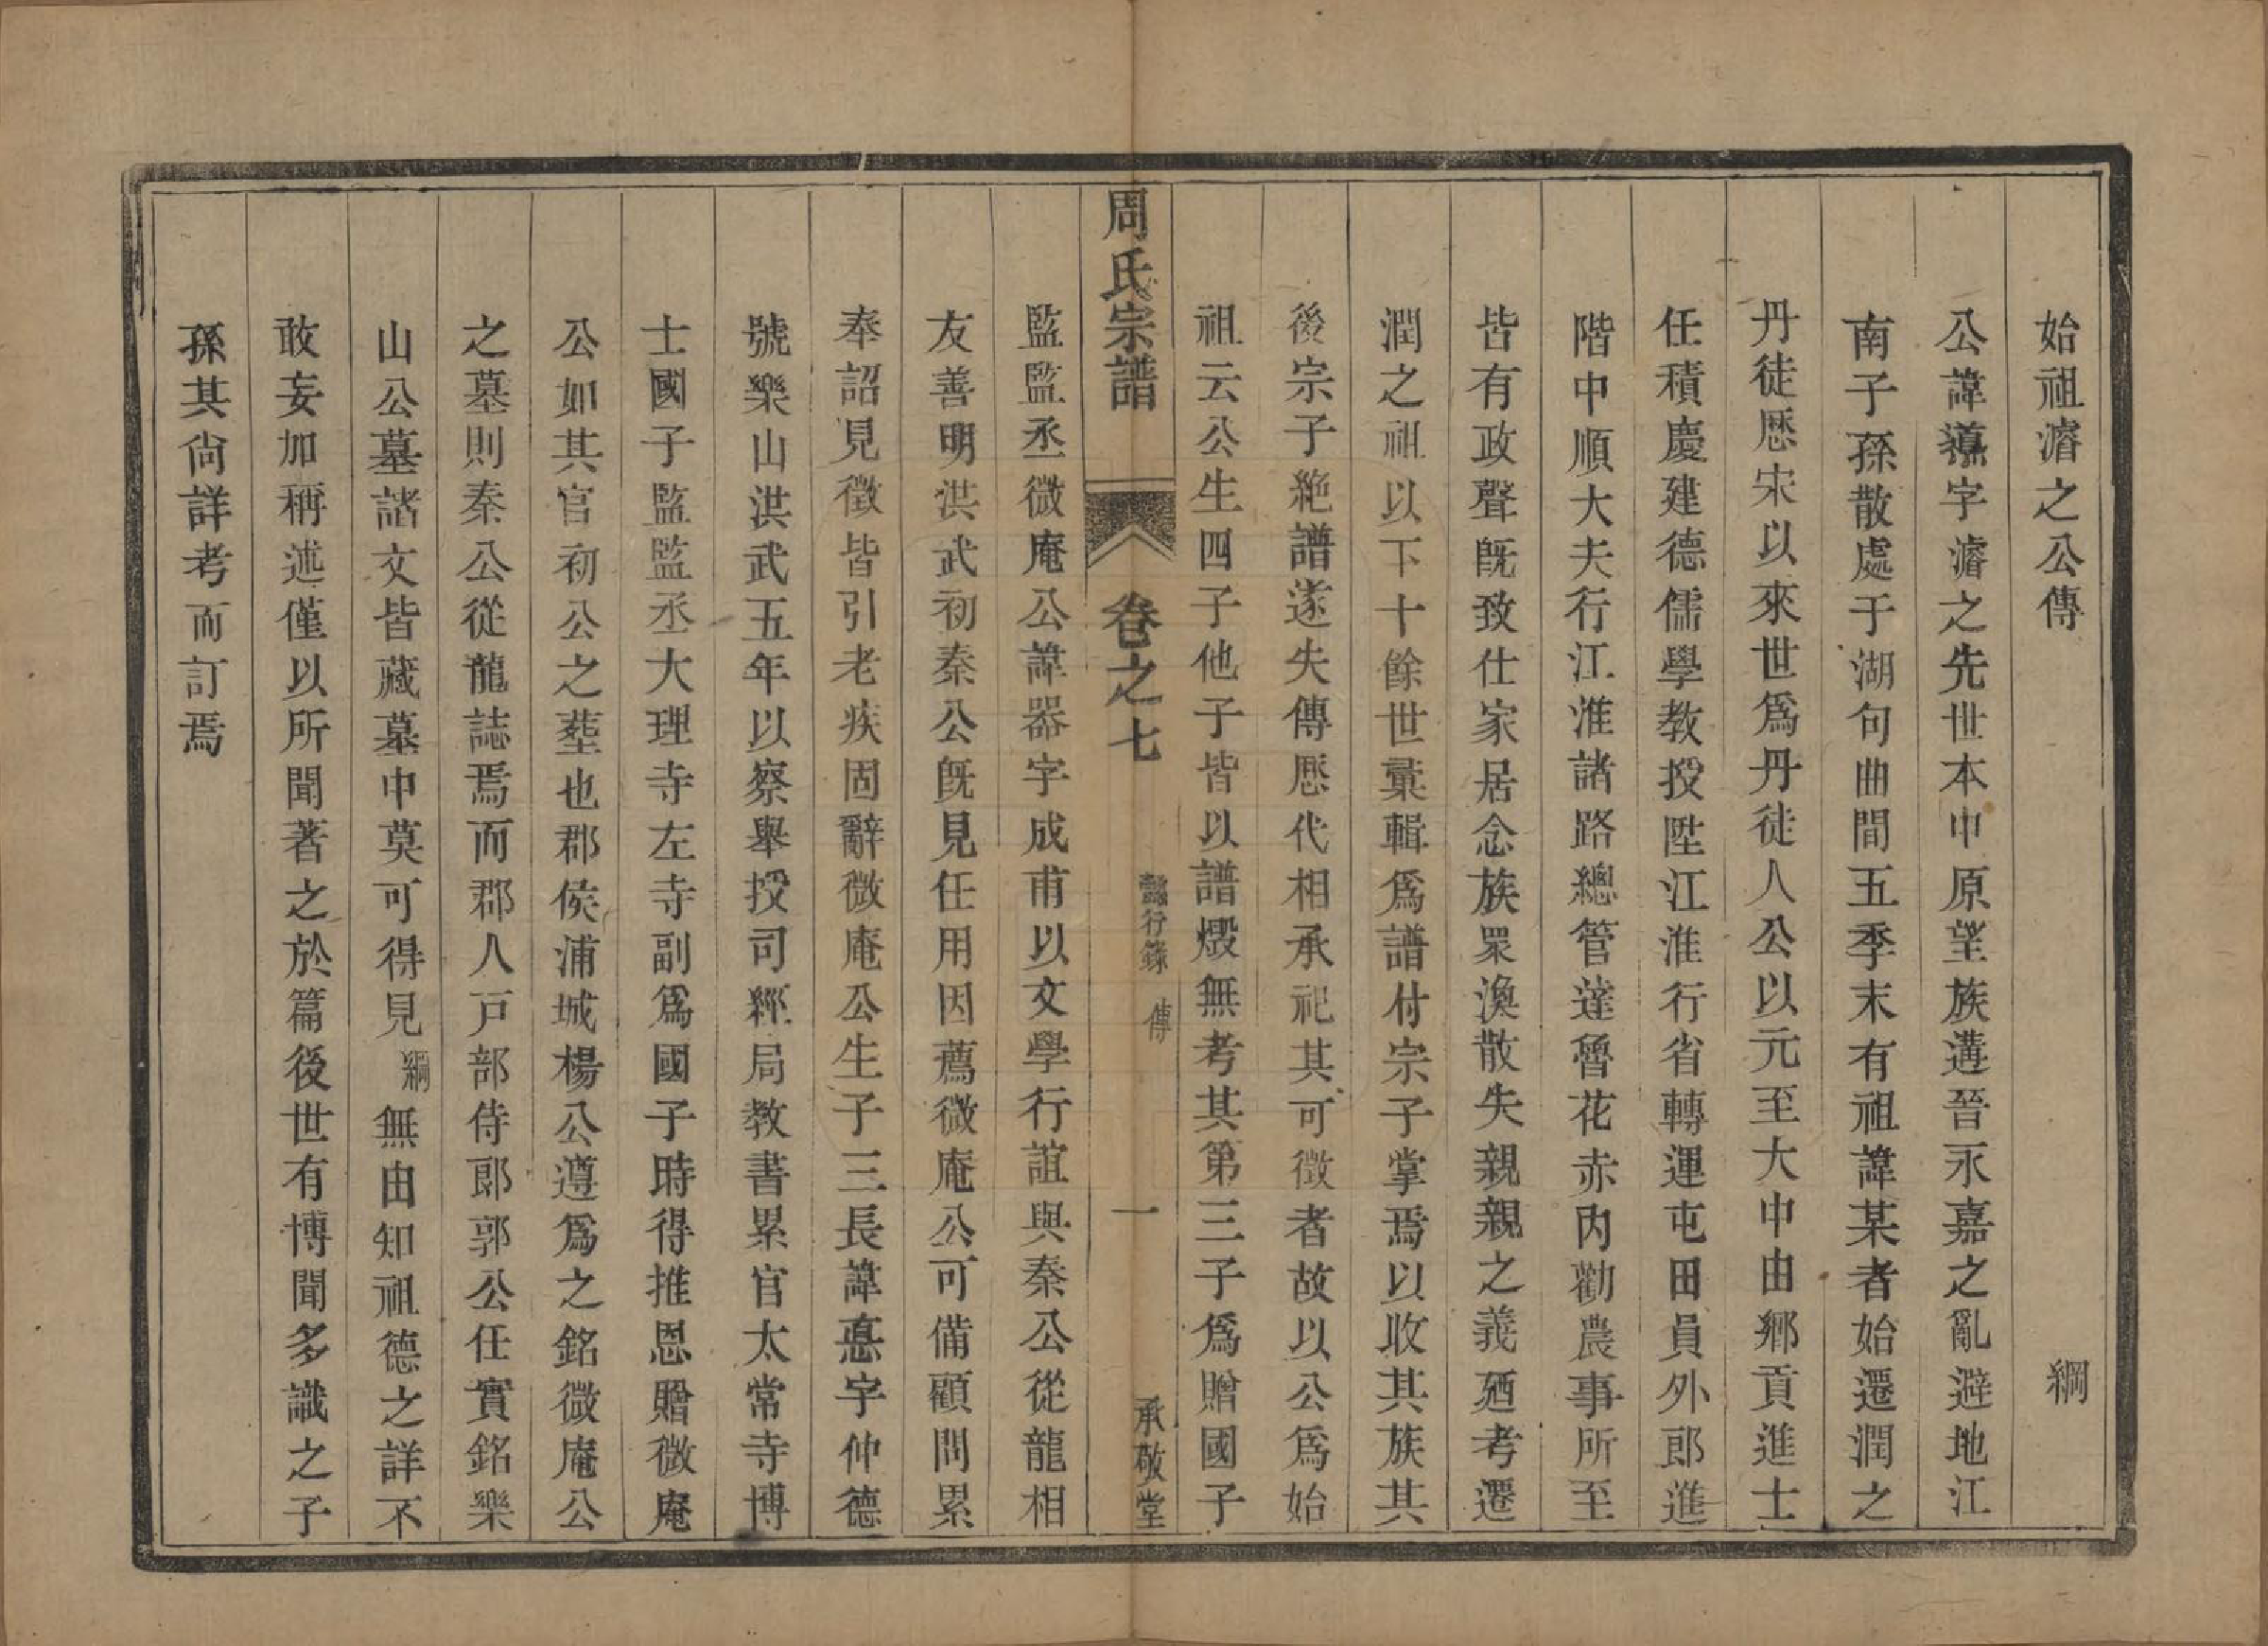 始祖濬之公傳 綱
公諱導字濬之先世本中原望族遘晉永嘉之亂避地江
南子孫散處于湖句曲間五季末有祖諱某者始遷潤之
丹徒歷宋以來世爲丹徒人公以元至大中由鄉貢進士
任積慶建德儒學教授陞江淮行省轉運屯田員外郎進
階中順大夫行江淮諸路總管達魯花赤內勸農事所至
皆有政聲旣致仕家居念族眾渙散失親親之義廼考遷
潤之祖以下十餘世彙輯爲譜付宗子掌焉以收其族其
後宗子絶譜遂失傳歷代相承祀其可徵者故以公爲始
祖云公生四子他子皆以譜燬無考其第三子爲贈國子
周氏宗譜 卷之七 懿行錄 傳 一 承敬堂
監監丞微庵公諱器字成甫以文學行誼與秦公從龍相
友善明洪武初秦公旣見任用因薦微庵公可備顧問累
奉詔見徵皆引老疾固辭微庵公生子三長諱惪字仲德
號樂山洪武五年以察舉授司經局教書累官太常寺博
士國子監監丞大理寺左寺副爲國子時得推恩贈微庵
公如其官初公之塟也郡侯浦城楊公遵爲之銘微庵公
之墓則秦公從龍誌焉而郡人戸部侍郎郭公任實銘樂
山公墓諸文皆藏墓中莫可得見綱無由知祖德之詳不
敢妄加稱述僅以所聞著之於篇後世有博聞多識之子
孫其尙詳考而訂焉